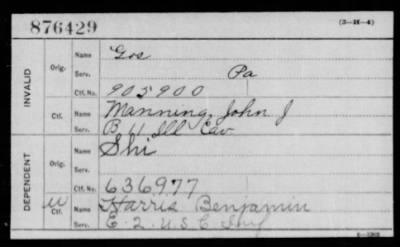 876429 (3-H-4)
INVALID
Orig. Name Gos
Serv. Pa
Ctf. No. 905900
Ctf. Name Manning, John J
Serv. B 11 Ill Cav
DEPENDENT
Orig. Name Shi
Serv.
Ctf. No. 636977
Ctf. Name Harris Benjamin
Serv. E. 2. U. S. C Inf